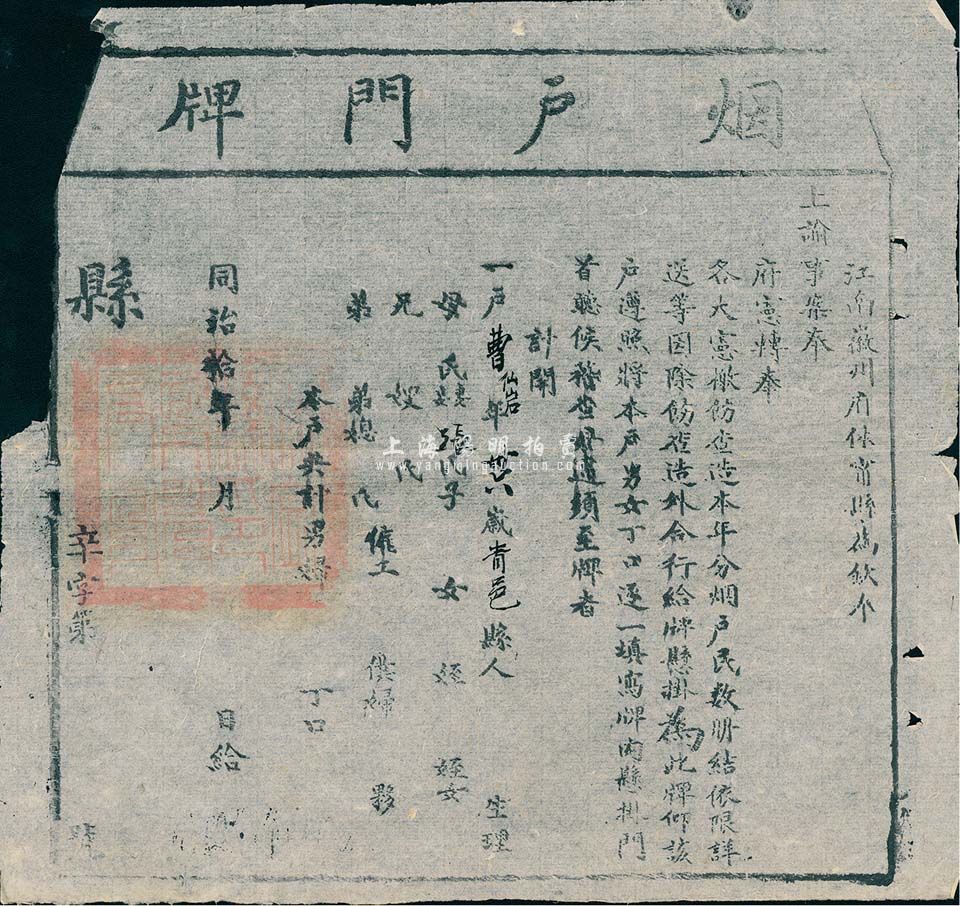 烟戶門牌
江南徽州府休甯縣為欽奉
上諭事案奉
府憲轉奉
各大憲檄飭查造本年分烟戶民數册結依限詳
送等因除飭查造外合行給牌懸掛為此牌仰該
戶遵照將本戶男女丁口逐一填寫牌內懸掛門
首聽候稽查毋違須至牌者
計開
一戶曹 年 歲 青邑縣人 生理
母氏妻妾張氏子 女 姪 姪女
兄 嫂氏
弟 弟媳氏 僱工 僕婦 夥
本戶共計男婦 丁口
同治拾年 月 日給
縣
辛字第 號
上海 明拍賣
www.yangmingauction.com